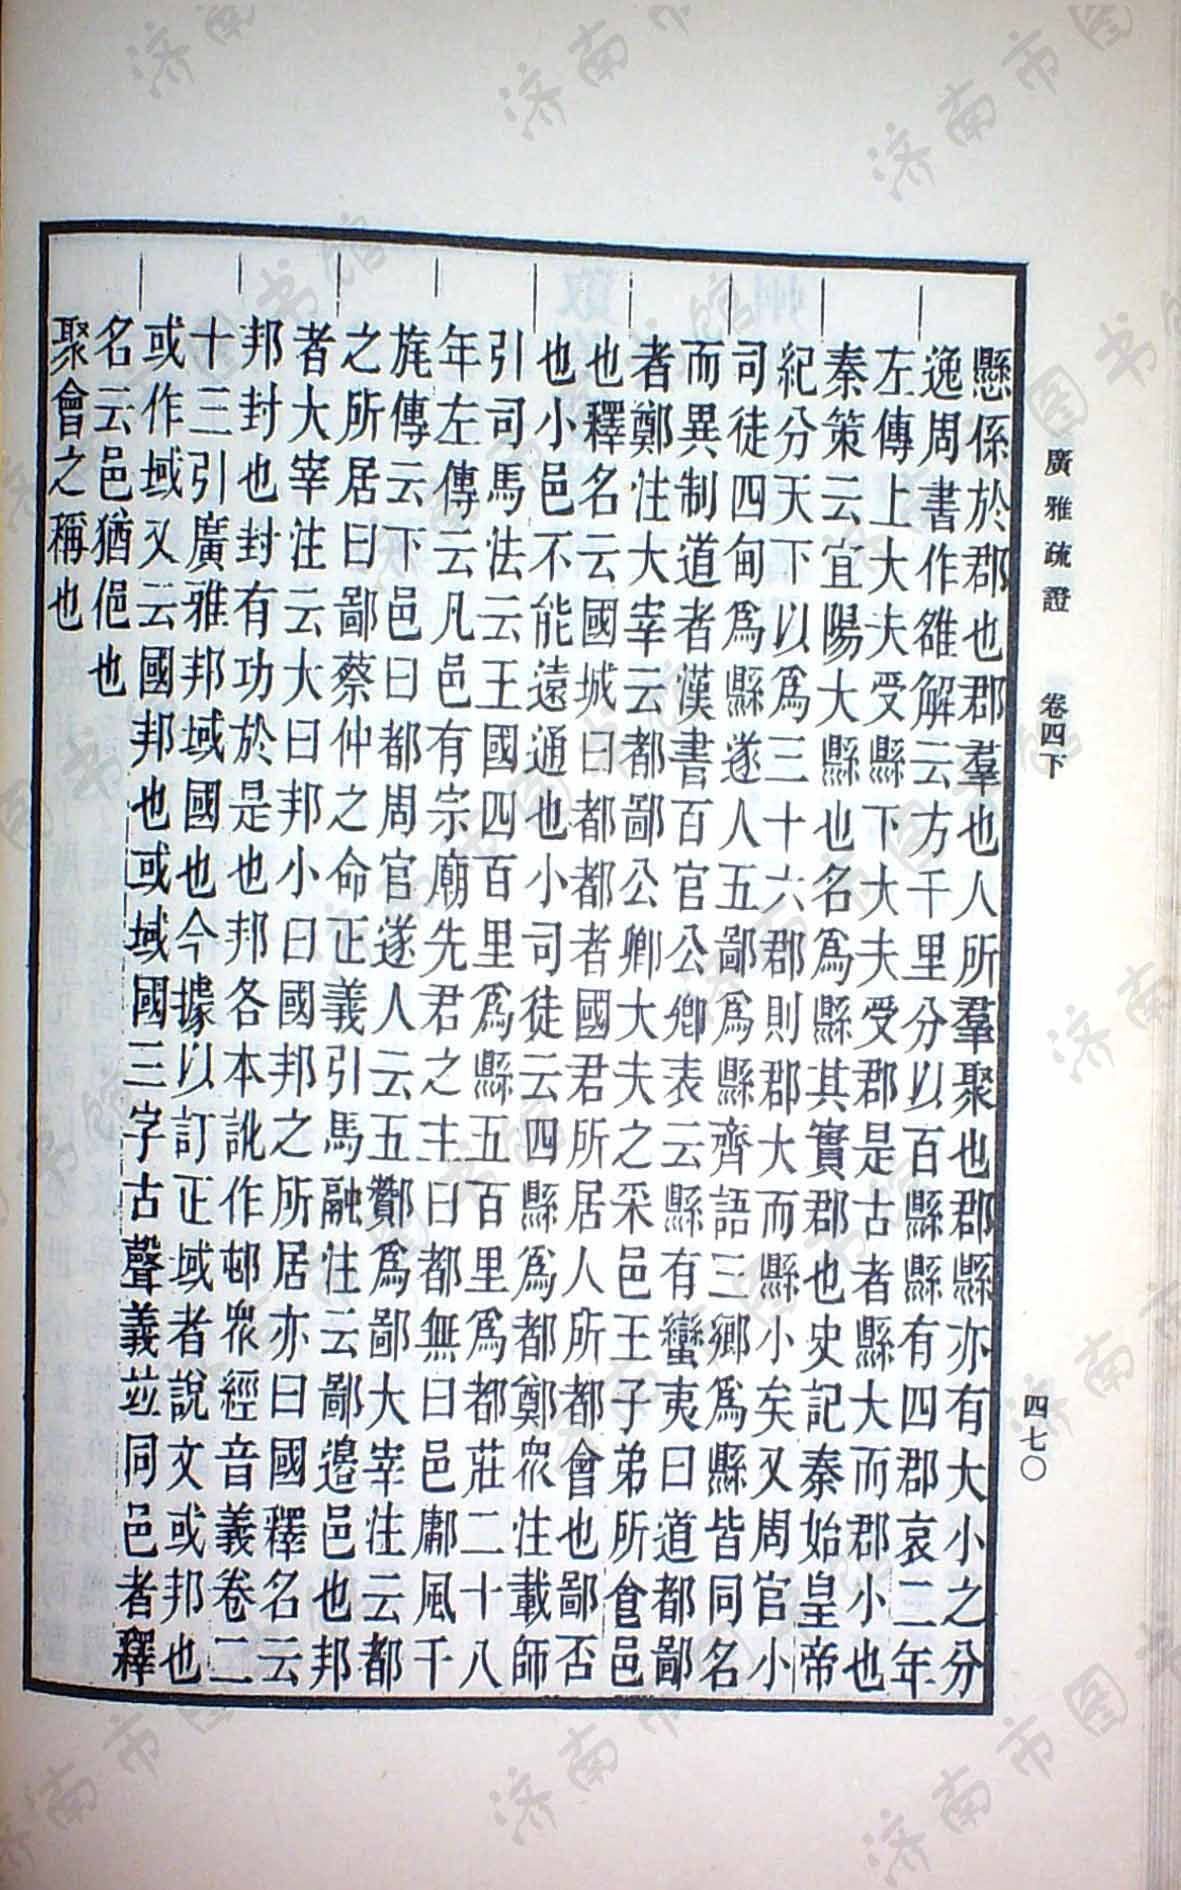 廣雅疏證　卷四下
四七〇
懸係於郡也郡羣也人所羣聚也郡縣亦有大小之分
逸周書作雒解云方千里分以百縣縣有四郡哀二年
左傳上大夫受縣下大夫受郡是古者縣大而郡小也
秦策云宜陽大縣也名爲縣其實郡也史記秦始皇帝
紀分天下以爲三十六郡則郡大而縣小矣又周官小
司徒四甸爲縣遂人五鄙爲縣齊語三鄉爲縣皆同名
而異制道者漢書百官公卿表云縣有蠻夷曰道都鄙
者鄭注大宰云都鄙公卿大夫之采邑王子弟所食邑
也釋名云國城曰都都者國君所居人所都會也鄙否
也小邑不能遠通也小司徒云四縣爲都鄭衆注載師
引司馬法云王國四百里爲縣五百里爲都莊二十八
年左傳云凡邑有宗廟先君之主曰都無曰邑鄘風干
旄傳云下邑曰都周官遂人云五酇爲鄙大宰注云都
之所居曰鄙蔡仲之命正義引馬融注云鄙邊邑也邦
者大宰注云大曰邦小曰國邦之所居亦曰國釋名云
邦封也封有功於是也邦各本訛作邨衆經音義卷二
十三引廣雅邦域國也今據以訂正域者說文或邦也
或作域又云國邦也或域國三字古聲義竝同邑者釋
名云邑猶俋也
聚會之稱也
济南市图书馆